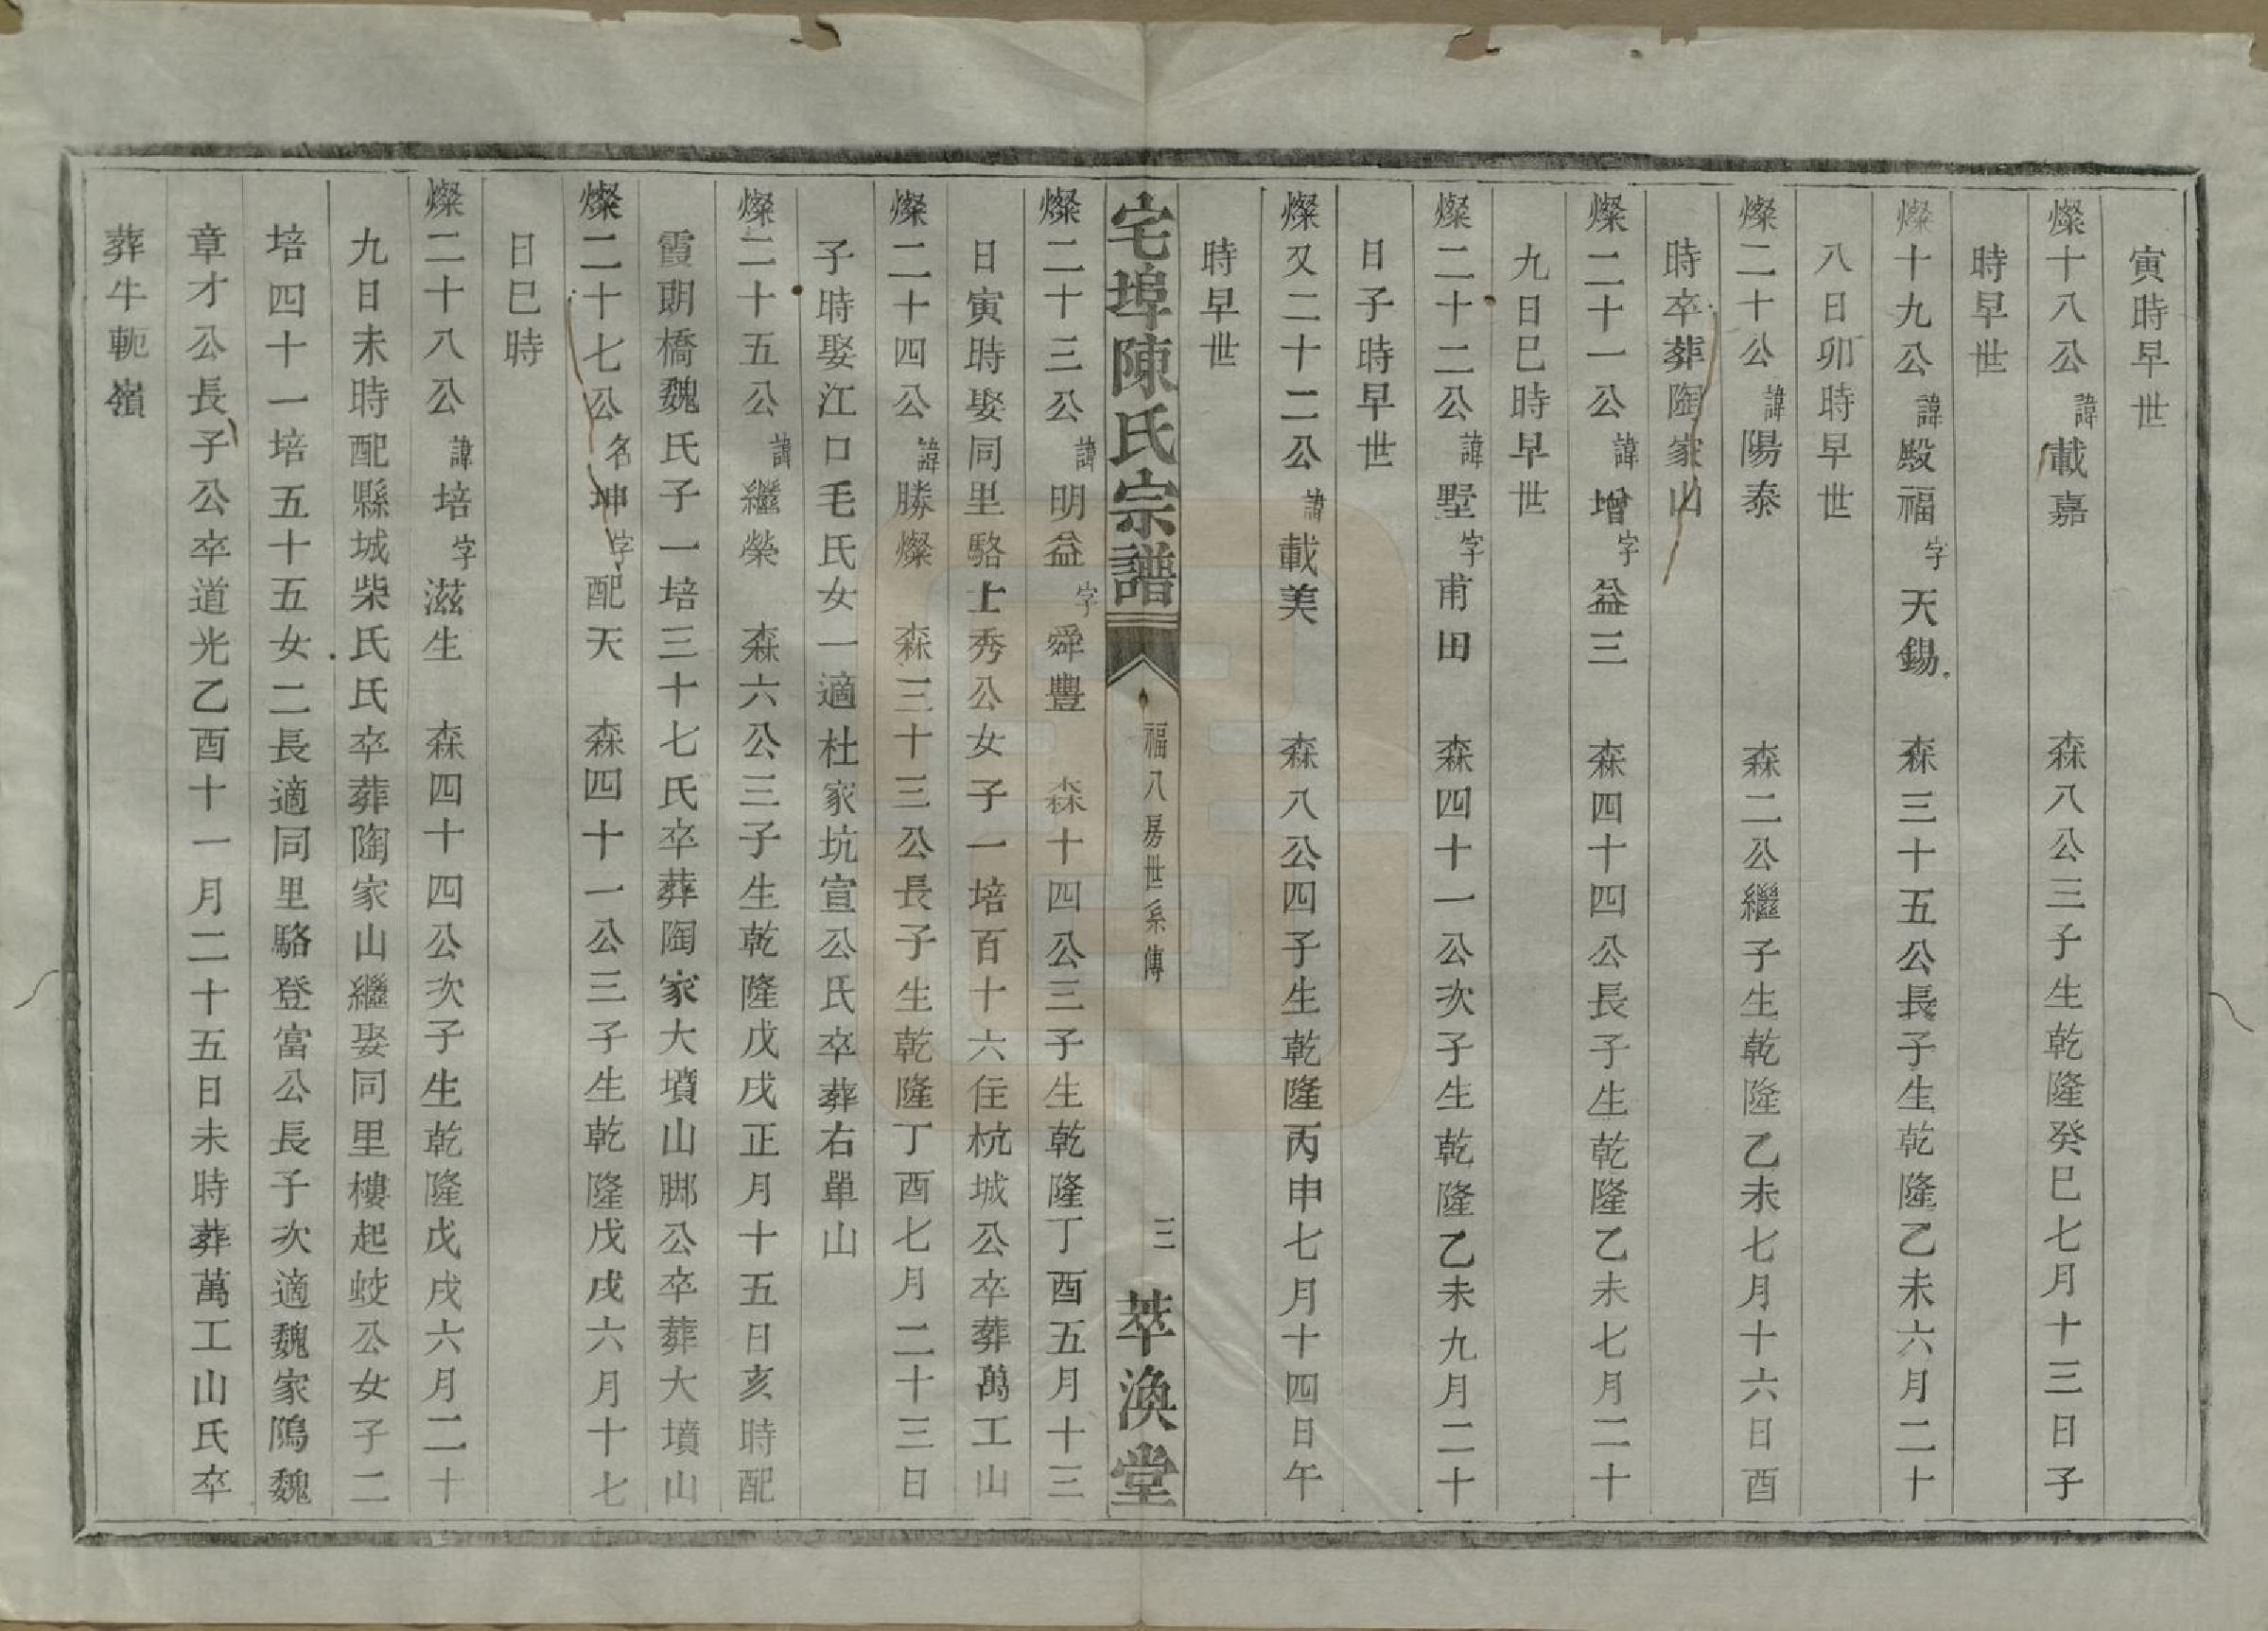 寅時早世
燦十八公諱載嘉 森八公三子生乾隆癸巳七月十三日子
時早世
燦十九公諱殿福字天錫 森三十五公長子生乾隆乙未六月二十
八日卯時早世
燦二十公諱陽泰 森二公繼子生乾隆乙未七月十六日酉
時卒葬陶家山
燦二十一公諱增字益三 森四十四公長子生乾隆乙未七月二十
九日巳時早世
燦二十二公諱墅字甫田 森四十一公次子生乾隆乙未九月二十
日子時早世
燦又二十二公諱載美 森八公四子生乾隆丙申七月十四日午
時早世
宅埠陳氏宗譜 福八房世系傳 三 萃渙堂
燦二十三公諱明益字舜豐 森十四公三子生乾隆丁酉五月十三
日寅時娶同里駱士秀公女子一培百十六住杭城公卒葬萬工山
燦二十四公諱勝燦 森三十三公長子生乾隆丁酉七月二十三日
子時娶江口毛氏女一適杜家坑宣公氏卒葬右單山
燦二十五公諱繼榮 森六公三子生乾隆戊戌正月十五日亥時配
霞朗橋魏氏子一培三十七氏卒葬陶家大墳山脚公卒葬大墳山
燦二十七公名坤字配天 森四十一公三子生乾隆戊戌六月十七
日巳時
燦二十八公諱培字滋生 森四十四公次子生乾隆戊戌六月二十
九日未時配縣城柴氏氏卒葬陶家山繼娶同里樓起蛟公女子二
培四十一培五十五女二長適同里駱登富公長子次適魏家隖魏
章才公長子公卒道光乙酉十一月二十五日未時葬萬工山氏卒
葬牛軛嶺